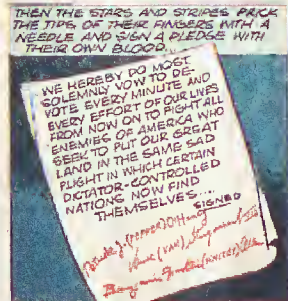 THEN THE STARS AND STRIPES PRICK
THE TIPS OF THEIR FINGERS WITH A
NEEDLE AND SIGN A PLEDGE WITH
THEIR OWN BLOOD.
WE HEREBY DO MOST
SOLEMNLY VOW TO DE-
VOTE EVERY MINUTE AND
EVERY EFFORT OF OUR LIVES
FROM NOW ON TO FIGHT ALL
ENEMIES OF AMERICA WHO
SEEK TO PUT OUR GREAT
LAND IN THE SAME SAD
PLIGHT IN WHICH CERTAIN
DICTATOR-CONTROLLED
NATIONS NOW FIND
THEMSELVES....
SIGNED
(PEPPER) O'Henry
(WHITEY)